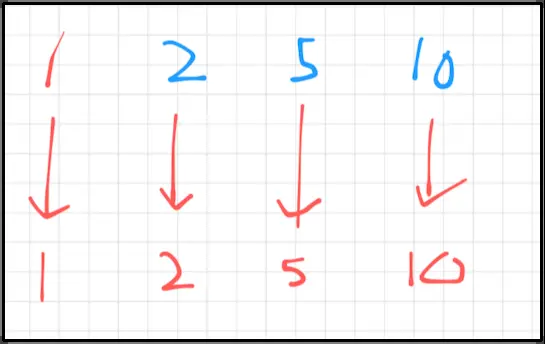 1 2 5 10
1 2 5 10